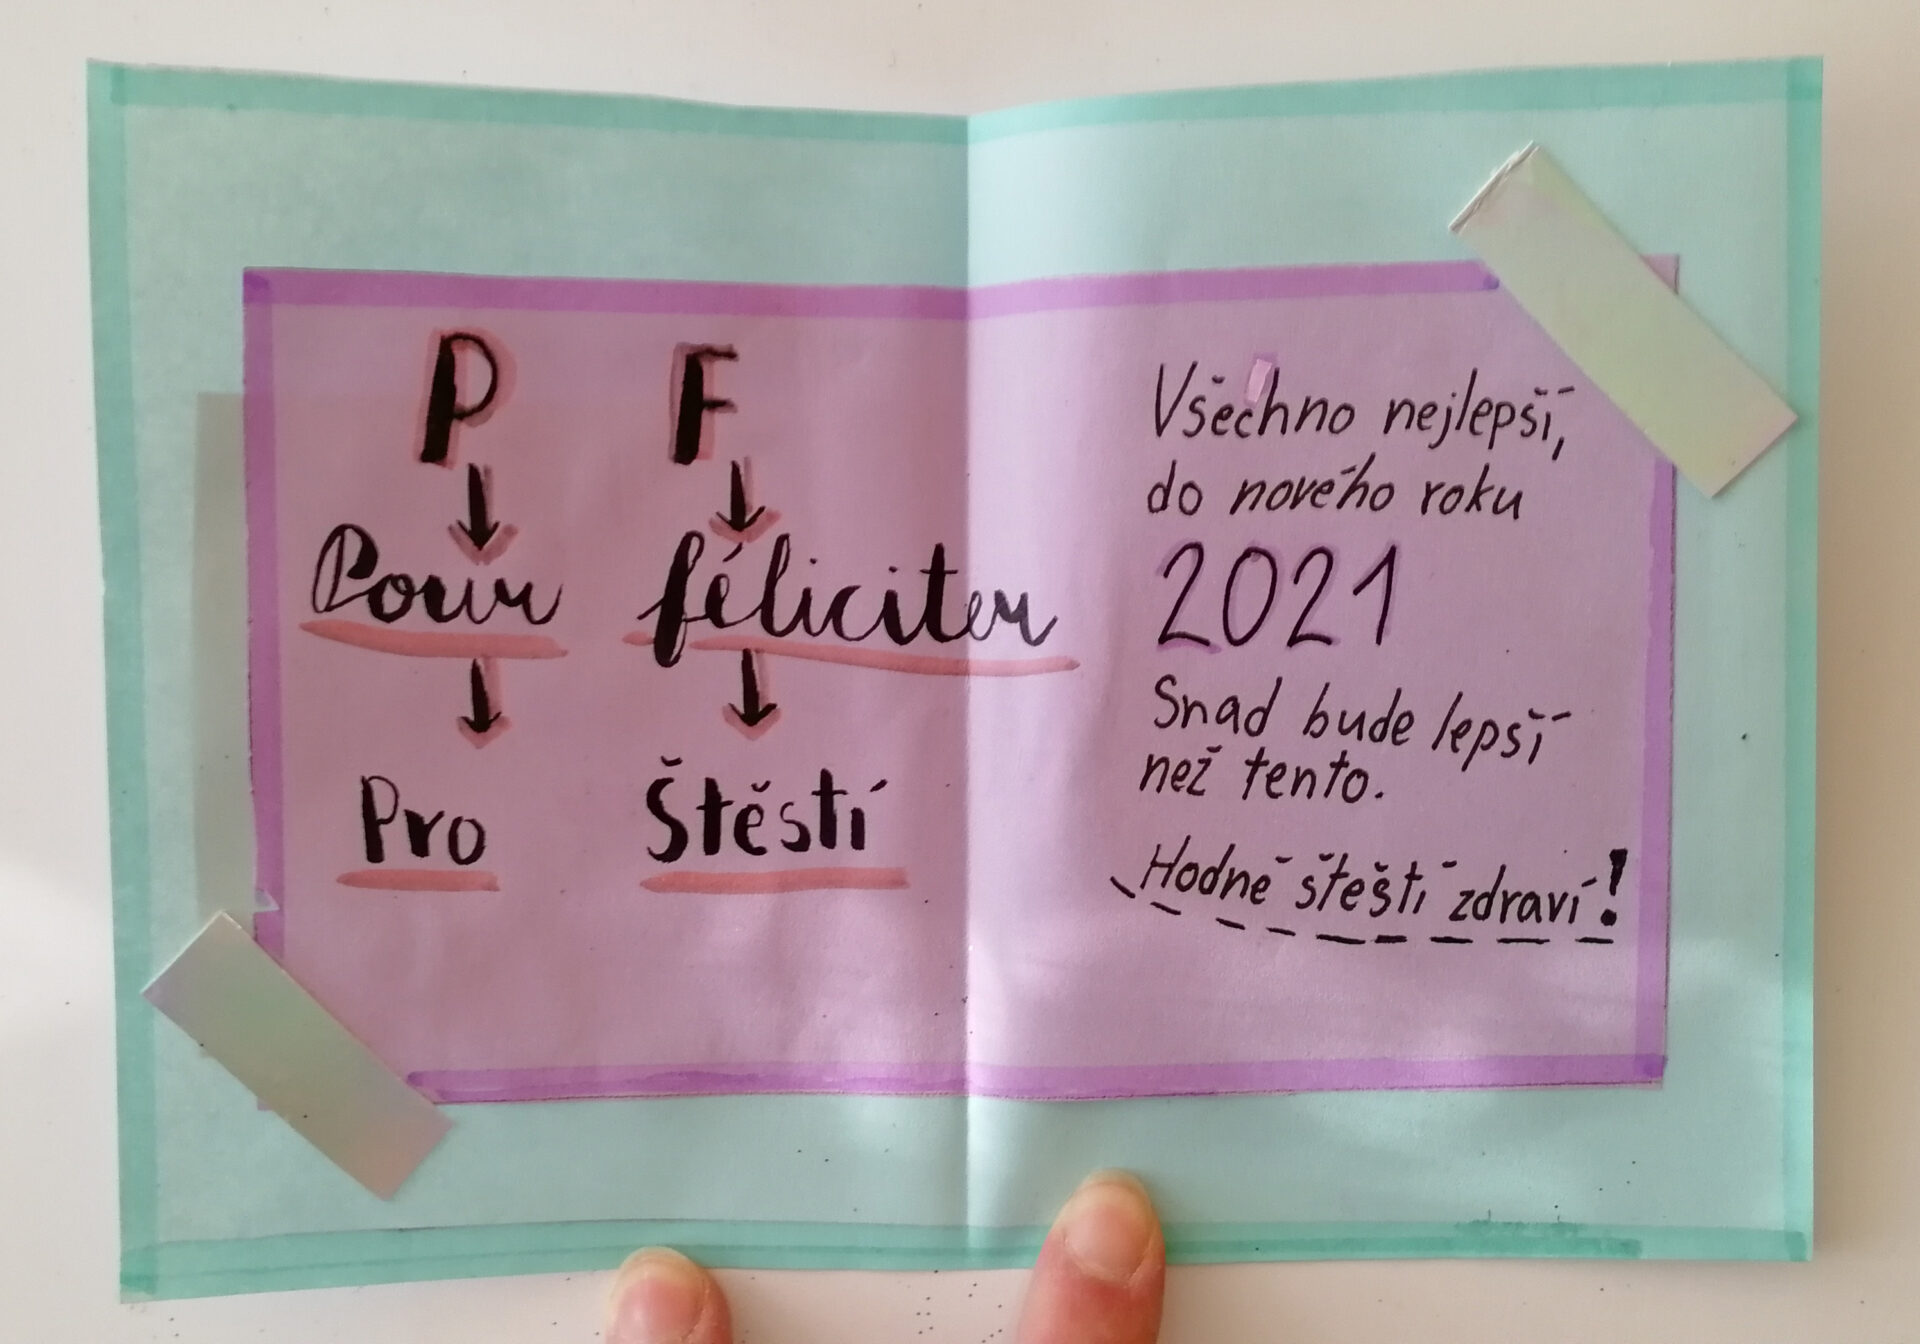 P F
Pour féliciter
Pro Štěstí
Všechno nejlepší,
do nového roku
2021
Snad bude lepší
než tento.
Hodně štěští zdraví!